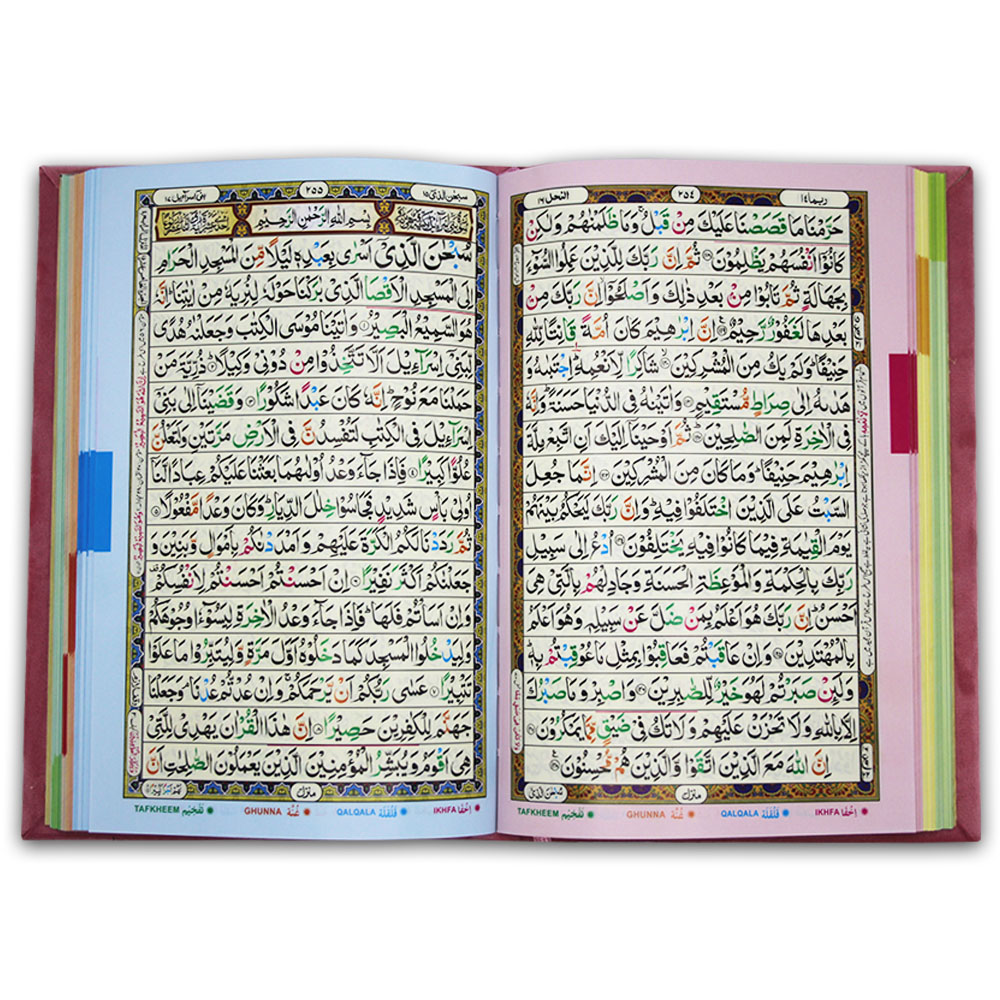 ربما ١٤
٢٥٤
النحل ١٦
حَرَّمْنَا مَا قَصَصْنَا عَلَيْكَ مِنْ قَبْلُ ۚ وَمَا ظَلَمْنٰهُمْ وَلٰكِنْ
كَانُوْٓا اَنْفُسَهُمْ يَظْلِمُوْنَ ﴿۱۱۸﴾ ثُمَّ اِنَّ رَبَّكَ لِلَّذِيْنَ عَمِلُوا السُّوْٓءَ
بِجَهَالَةٍ ثُمَّ تَابُوْا مِنْ بَعْدِ ذٰلِكَ وَاَصْلَحُوْٓا اِنَّ رَبَّكَ مِنْ
بَعْدِهَا لَغَفُوْرٌ رَّحِيْمٌ ﴿۱۱۹﴾ اِنَّ اِبْرٰهِيْمَ كَانَ اُمَّةً قَانِتًا لِّلّٰهِ
حَنِيْفًا ؕ وَلَمْ يَكُ مِنَ الْمُشْرِكِيْنَ ﴿۱۲۰﴾ شَاكِرًا لِّاَنْعُمِهٖ ؕ اِجْتَبٰىهُ وَ
هَدٰىهُ اِلٰى صِرَاطٍ مُّسْتَقِيْمٍ ﴿۱۲۱﴾ وَاٰتَيْنٰهُ فِى الدُّنْيَا حَسَنَةً ؕ وَاِنَّهٗ
فِى الْاٰخِرَةِ لَمِنَ الصّٰلِحِيْنَ ﴿۱۲۲﴾ ثُمَّ اَوْحَيْنَآ اِلَيْكَ اَنِ اتَّبِعْ مِلَّةَ
اِبْرٰهِيْمَ حَنِيْفًا ؕ وَمَا كَانَ مِنَ الْمُشْرِكِيْنَ ﴿۱۲۳﴾ اِنَّمَا جُعِلَ
السَّبْتُ عَلَى الَّذِيْنَ اخْتَلَفُوْا فِيْهِ ؕ وَاِنَّ رَبَّكَ لَيَحْكُمُ بَيْنَهُمْ
يَوْمَ الْقِيٰمَةِ فِيْمَا كَانُوْا فِيْهِ يَخْتَلِفُوْنَ ﴿۱۲۴﴾ اُدْعُ اِلٰى سَبِيْلِ
رَبِّكَ بِالْحِكْمَةِ وَالْمَوْعِظَةِ الْحَسَنَةِ وَجَادِلْهُمْ بِالَّتِىْ هِىَ
اَحْسَنُ ؕ اِنَّ رَبَّكَ هُوَ اَعْلَمُ بِمَنْ ضَلَّ عَنْ سَبِيْلِهٖ وَهُوَ اَعْلَمُ
بِالْمُهْتَدِيْنَ ﴿۱۲۵﴾ وَاِنْ عَاقَبْتُمْ فَعَاقِبُوْا بِمِثْلِ مَا عُوْقِبْتُمْ بِهٖ ؕ
وَلَئِنْ صَبَرْتُمْ لَهُوَ خَيْرٌ لِّلصّٰبِرِيْنَ ﴿۱۲۶﴾ وَاصْبِرْ وَمَا صَبْرُكَ
اِلَّا بِاللّٰهِ وَلَا تَحْزَنْ عَلَيْهِمْ وَلَا تَكُ فِىْ ضَيْقٍ مِّمَّا يَمْكُرُوْنَ ﴿۱۲۷﴾
اِنَّ اللّٰهَ مَعَ الَّذِيْنَ اتَّقَوْا وَّالَّذِيْنَ هُمْ مُّحْسِنُوْنَ ﴿۱۲۸﴾
منزل ٣
سبحٰن الذى
● اِخفا IKHFA ● قلقلة QALQALA ● غنّة GHUNNA ● تفخيم TAFKHEEM
سبحٰن الذى ١٥
٢٥٥
بنى اسرآءيل ١٧
بِسْمِ اللّٰهِ الرَّحْمٰنِ الرَّحِيْمِ
سُبْحٰنَ الَّذِىْٓ اَسْرٰى بِعَبْدِهٖ لَيْلًا مِّنَ الْمَسْجِدِ الْحَرَامِ
اِلَى الْمَسْجِدِ الْاَقْصَا الَّذِىْ بٰرَكْنَا حَوْلَهٗ لِنُرِيَهٗ مِنْ اٰيٰتِنَا ؕ اِنَّهٗ
هُوَ السَّمِيْعُ الْبَصِيْرُ ﴿۱﴾ وَاٰتَيْنَا مُوْسَى الْكِتٰبَ وَجَعَلْنٰهُ هُدًى
لِّبَنِىْٓ اِسْرَآءِيْلَ اَلَّا تَتَّخِذُوْا مِنْ دُوْنِىْ وَكِيْلًا ﴿۲﴾ ذُرِّيَّةَ مَنْ
حَمَلْنَا مَعَ نُوْحٍ ؕ اِنَّهٗ كَانَ عَبْدًا شَكُوْرًا ﴿۳﴾ وَقَضَيْنَآ اِلٰى بَنِىْٓ
اِسْرَآءِيْلَ فِى الْكِتٰبِ لَتُفْسِدُنَّ فِى الْاَرْضِ مَرَّتَيْنِ وَلَتَعْلُنَّ
عُلُوًّا كَبِيْرًا ﴿۴﴾ فَاِذَا جَآءَ وَعْدُ اُوْلٰىهُمَا بَعَثْنَا عَلَيْكُمْ عِبَادًا لَّنَآ
اُولِىْ بَاْسٍ شَدِيْدٍ فَجَاسُوْا خِلٰلَ الدِّيَارِ ؕ وَكَانَ وَعْدًا مَّفْعُوْلًا ﴿۵﴾
ثُمَّ رَدَدْنَا لَكُمُ الْكَرَّةَ عَلَيْهِمْ وَاَمْدَدْنٰكُمْ بِاَمْوَالٍ وَّبَنِيْنَ وَ
جَعَلْنٰكُمْ اَكْثَرَ نَفِيْرًا ﴿۶﴾ اِنْ اَحْسَنْتُمْ اَحْسَنْتُمْ لِاَنْفُسِكُمْ
وَاِنْ اَسَاْتُمْ فَلَهَا ؕ فَاِذَا جَآءَ وَعْدُ الْاٰخِرَةِ لِيَسُوْٓءٗا وُجُوْهَكُمْ
وَلِيَدْخُلُوا الْمَسْجِدَ كَمَا دَخَلُوْهُ اَوَّلَ مَرَّةٍ وَّلِيُتَبِّرُوْا مَا عَلَوْا
تَتْبِيْرًا ﴿۷﴾ عَسٰى رَبُّكُمْ اَنْ يَّرْحَمَكُمْ ۚ وَاِنْ عُدْتُّمْ عُدْنَا ۘ وَجَعَلْنَا
جَهَنَّمَ لِلْكٰفِرِيْنَ حَصِيْرًا ﴿۸﴾ اِنَّ هٰذَا الْقُرْاٰنَ يَهْدِىْ لِلَّتِىْ
هِىَ اَقْوَمُ وَيُبَشِّرُ الْمُؤْمِنِيْنَ الَّذِيْنَ يَعْمَلُوْنَ الصّٰلِحٰتِ اَنَّ
منزل ٤
● اِخفا IKHFA ● قلقلة QALQALA ● غنّة GHUNNA ● تفخيم TAFKHEEM